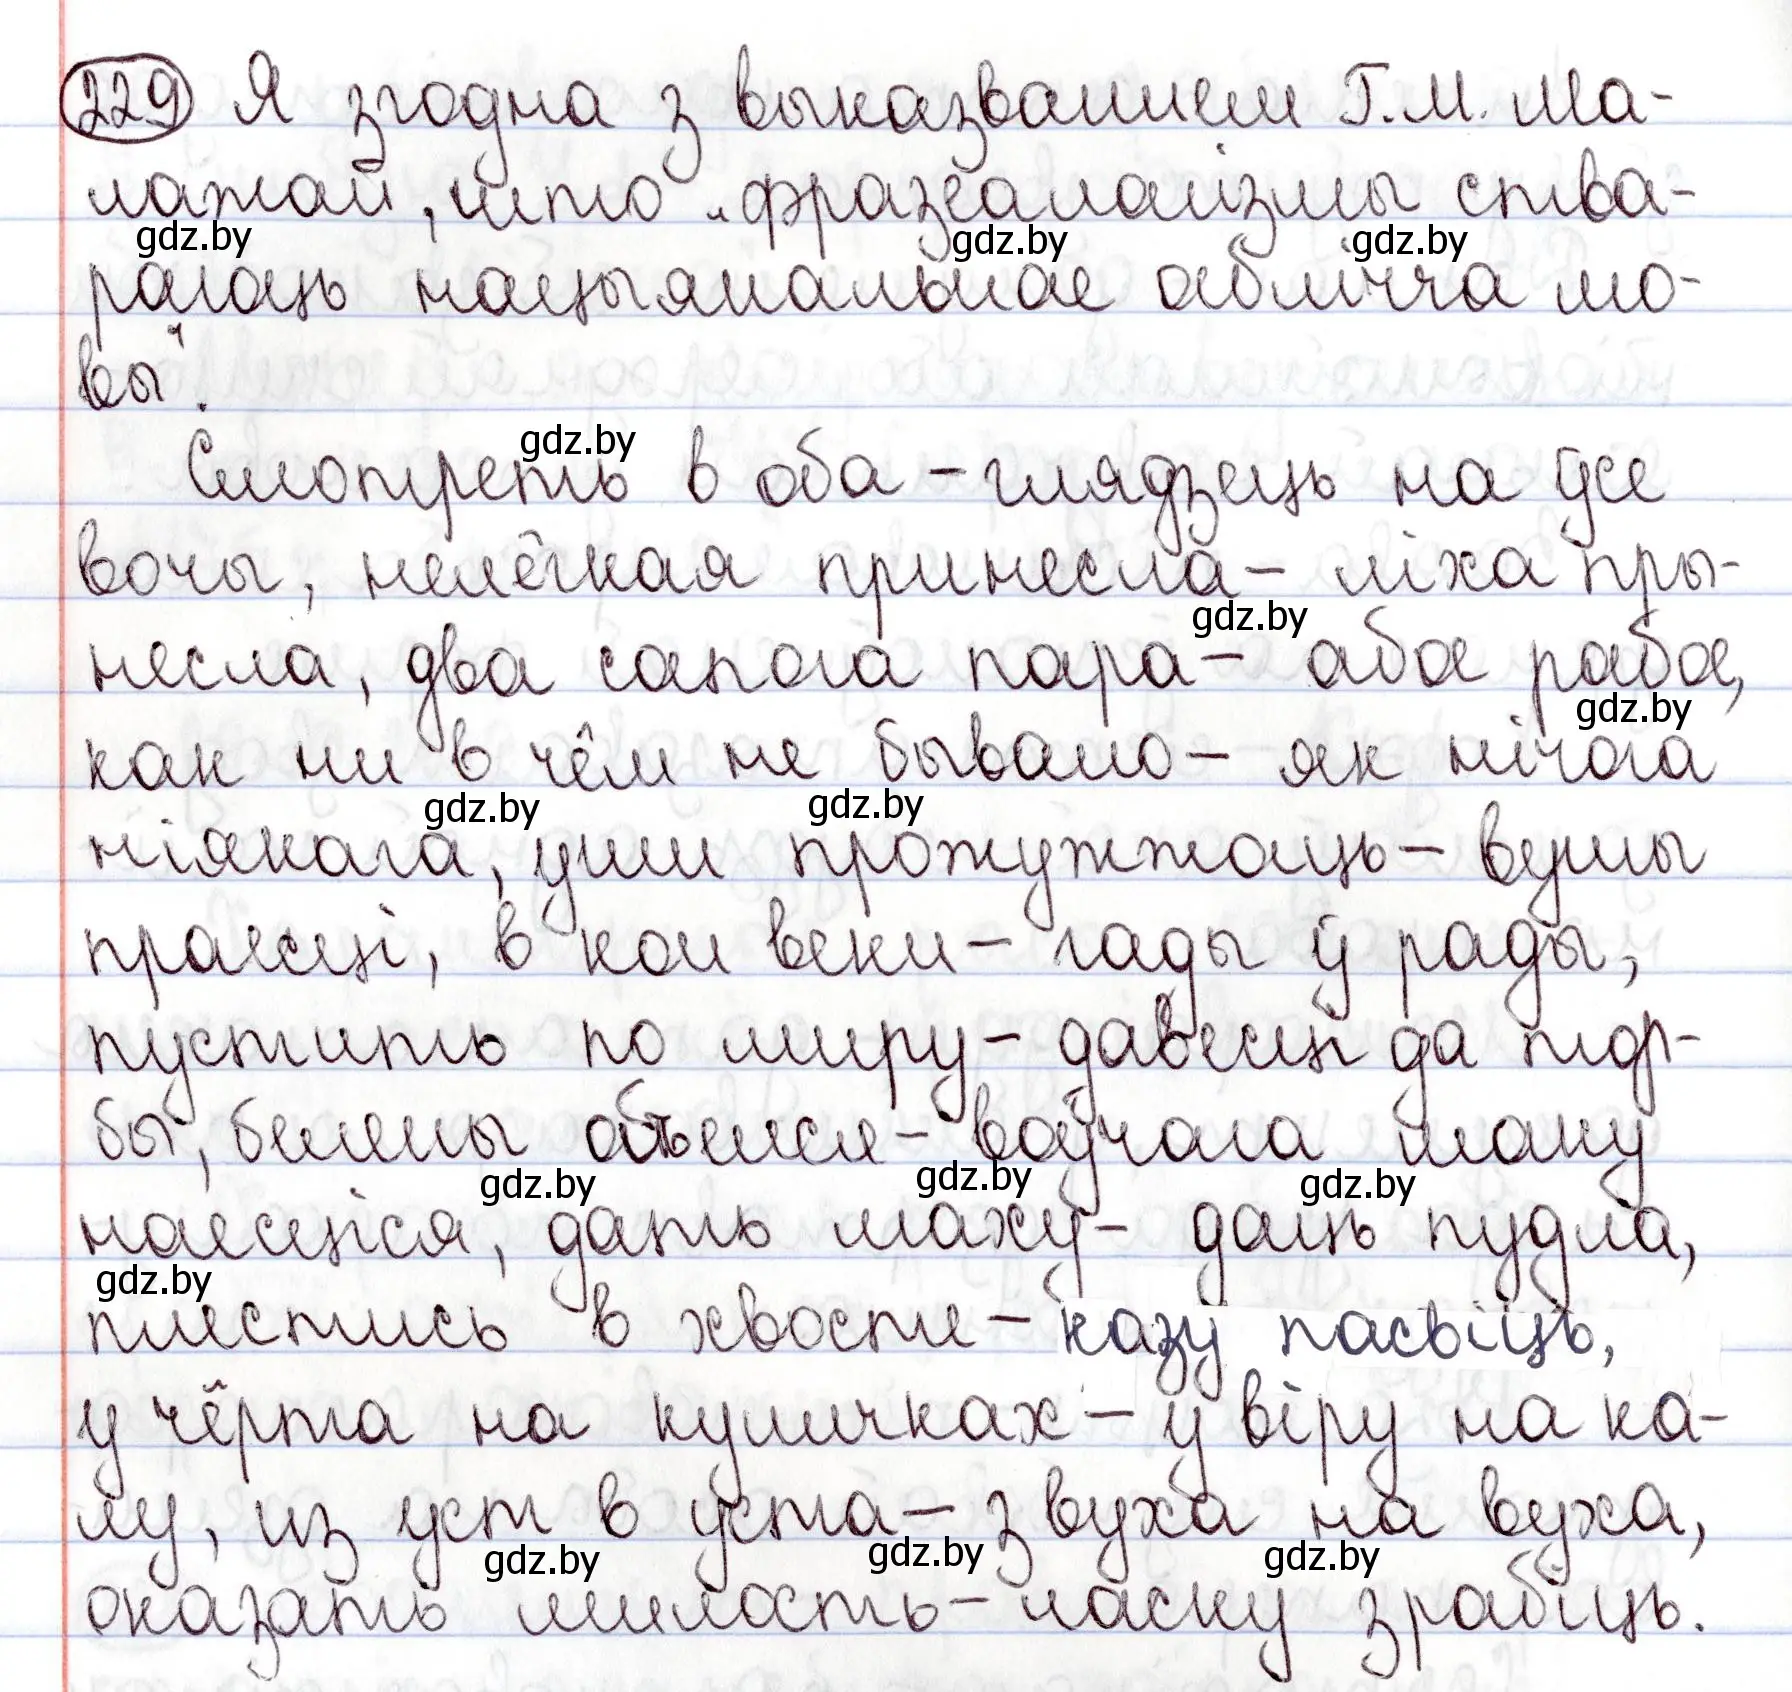 229 Я згодна з выказваннем Г.М. Ма-
лажай, што "фразеалагізмы ства-
gdz.by gdz.by gdz.by
раюць нацыянальнае аблічча мо-
вы".
gdz.by
Смотреть в оба - глядзець на ўсе
вочы, нелёгкая принесла - ліха пры-
gdz.by
несла, два сапога пара - абое рабое,
gdz.by
как ни в чём не бывало - як нічога
gdz.by gdz.by
ніякага, уши прожужжаць - вушы
праесці, в кои веки - гады ў рады,
пустить по миру - давесці да тор-
бы, белены объелся - воўчага маку
gdz.by gdz.by gdz.by
наесціся, дать маху - даць пудла,
gdz.by
плестись в хвосте - казу пасвіць,
у чёрта на куличках - у віру на ка-
лу, из уст в уста - з вуха на вуха,
gdz.by gdz.by gdz.by
оказать милость - ласку зрабіць.